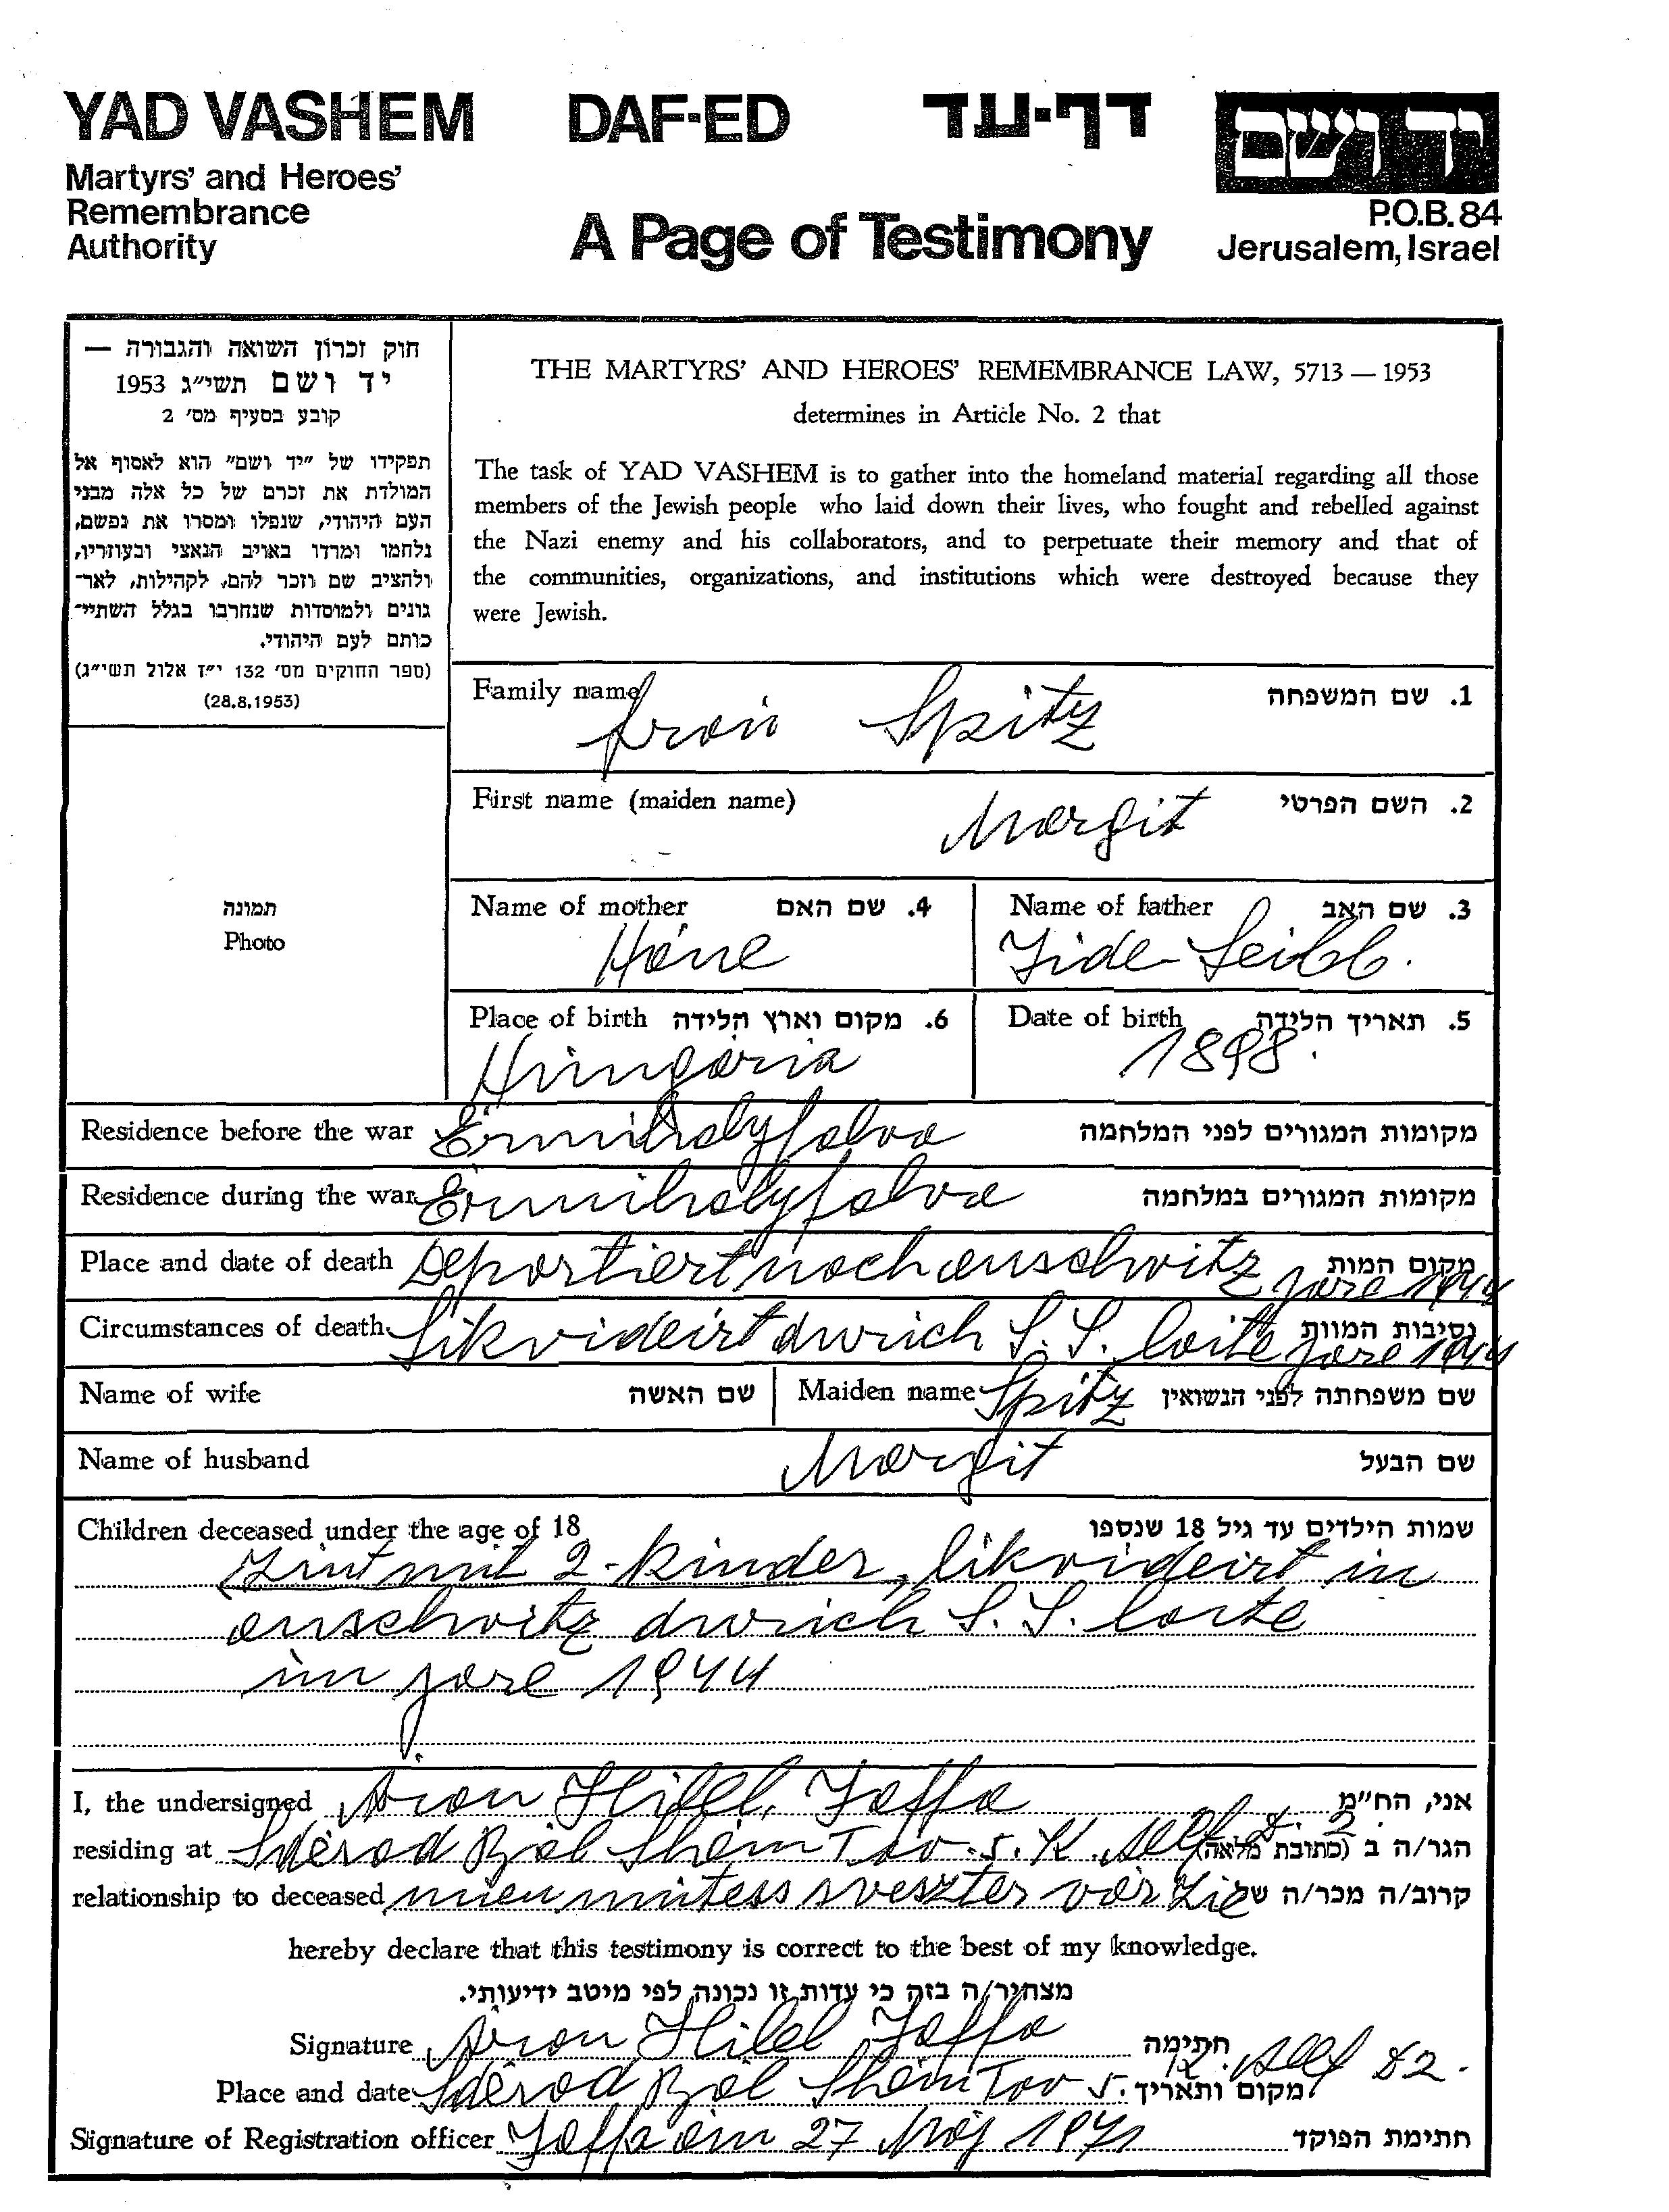 YAD VASHEM DAF-ED דף-עד יד ושם
Martyrs' and Heroes'
Remembrance
Authority
A Page of Testimony
P.O.B. 84
Jerusalem, Israel
חוק זכרון השואה והגבורה —
יד ושם תשי״ג 1953
קובע בסעיף מס׳ 2
תפקידו של ״יד ושם״ הוא לאסוף אל
המולדת את זכרם של כל אלה מבני
העם היהודי, שנפלו ומסרו את נפשם,
נלחמו ומרדו באויב הנאצי ובעוזריו,
ולהציב שם וזכר להם, לקהילות, לאר־
גונים ולמוסדות שנחרבו בגלל השתיי־
כותם לעם היהודי.
(ספר החוקים מס׳ 132 י״ז אלול תשי״ג)
(28.8.1953)
THE MARTYRS' AND HEROES' REMEMBRANCE LAW, 5713 — 1953
determines in Article No. 2 that
The task of YAD VASHEM is to gather into the homeland material regarding all those
members of the Jewish people who laid down their lives, who fought and rebelled against
the Nazi enemy and his collaborators, and to perpetuate their memory and that of
the communities, organizations, and institutions which were destroyed because they
were Jewish.
תמונה
Photo
Family name Aron Spitz 1. שם המשפחה
First name (maiden name) Margit 2. השם הפרטי
Name of mother 4. שם האם
Name of father 3. שם האב
Háne
Jide Leibb.
Place of birth 6. מקום וארץ הלידה
Date of birth 5. תאריך הלידה
Hungaria
1898.
Residence before the war Érmihalyfalva מקומות המגורים לפני המלחמה
Residence during the war Érmihalyfalva מקומות המגורים במלחמה
Place and date of death Deportiert nach auschwitz jare 1944 מקום המות
Circumstances of death Likvideirt durich S. S. laite jare 1944 נסיבות המוות
Name of wife שם האשה Maiden name Spitz שם משפחתה לפני הנשואין
Name of husband Margit שם הבעל
Children deceased under the age of 18 שמות הילדים עד גיל 18 שנספו
Zint mit 2-kinder, likvideirt in
auschwitz durich S. S. laite
im jare 1944
I, the undersigned Aron Hilel, Jaffa אני, הח״מ
residing at Sderod Bál Shém Tov 5. K. Alef D. 2. הגר/ה ב (כתובת מלאה)
relationship to deceased mien mutess sveszter vár Zie קרוב/ה מכר/ה של
hereby declare that this testimony is correct to the best of my knowledge.
מצהיר/ה בזה כי עדות זו נכונה לפי מיטב ידיעותי.
Signature Aron Hilel Jaffa חתימה
Place and date Sderod Bál Shém Tov 5. K. Alef D2. מקום ותאריך
Signature of Registration officer Jaffa am 27 Máj 1971 חתימת הפוקד